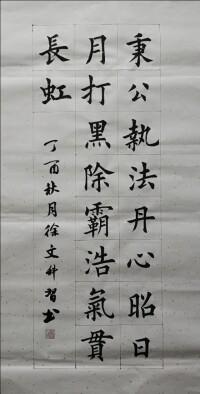 秉公執法丹心昭日
月打黑除霸浩氣貫
長虹
丁酉秋月徐文科習書